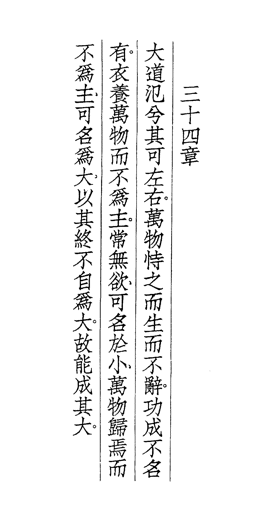 三十四章
大道氾兮其可左右。萬物恃之而生而不辭。功成不名
有。衣養萬物而不爲主。常無欲、可名於小、萬物歸焉而
不爲主、可名爲大、以其終不自爲大。故能成其大。